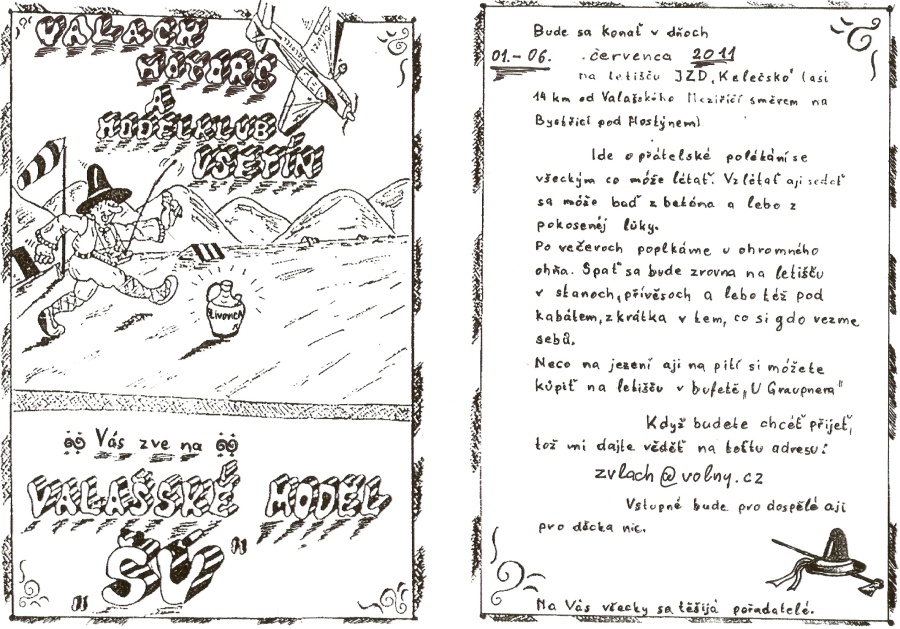 VALACH
MOTORS
A
MODELKLUB
VSETÍN
SLIVOVICA
Vás zve na
VALAŠSKÉ MODEL
"ŠÚ"
Bude sa konať v dňoch
01.- 06. červenca 2011
na letišču JZD „Kelečsko" (asi
14 km od Valašského Meziříčí směrem na
Bystřici pod Hostýnem)
Ide o přátelské polékání se
všeckým co móže létať. Vzlétať aji sedať
sa móže buď z betóna a lebo z
pokosenéj lúky.
Po večeroch poplkáme u ohromného
ohňa. Spať sa bude zrovna na letišču
v stanoch, přívěsoch a lebo též pod
kabátem, zkrátka v tem, co si gdo vezme
sebů.
Neco na jezení aji na pití si móžete
kúpiť na letišču v bufetě „U Graupnera"
Když budete chcéť přijeť,
tož mi dajte věděť na toftu adresu:
zvlach@volny.cz
Vstupné bude pro dospělé aji
pro děcka nic.
Na Vás všecky sa těšijá pořadatelé.